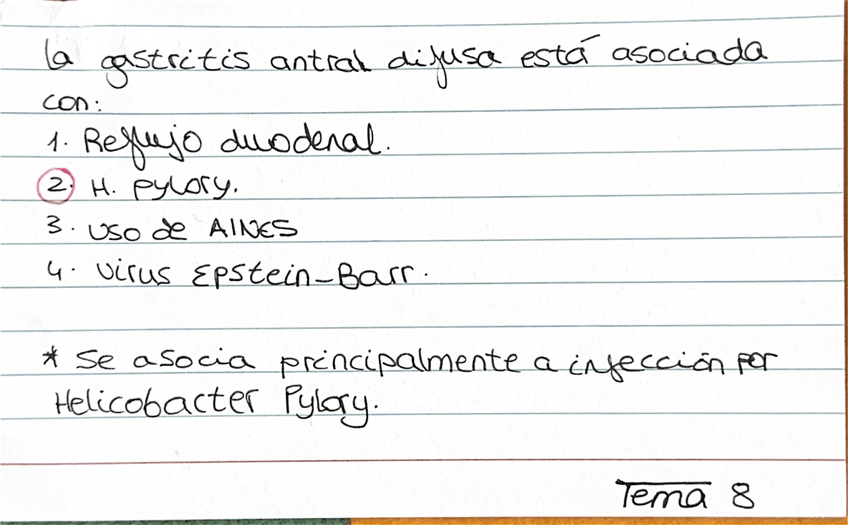 La gastritis antral difusa está asociada
con:
1. Reflujo duodenal.
2. H. Pylory.
3. Uso de AINES
4. Virus Epstein-Barr.
* Se asocia principalmente a infección por
Helicobacter Pylory.
Tema 8